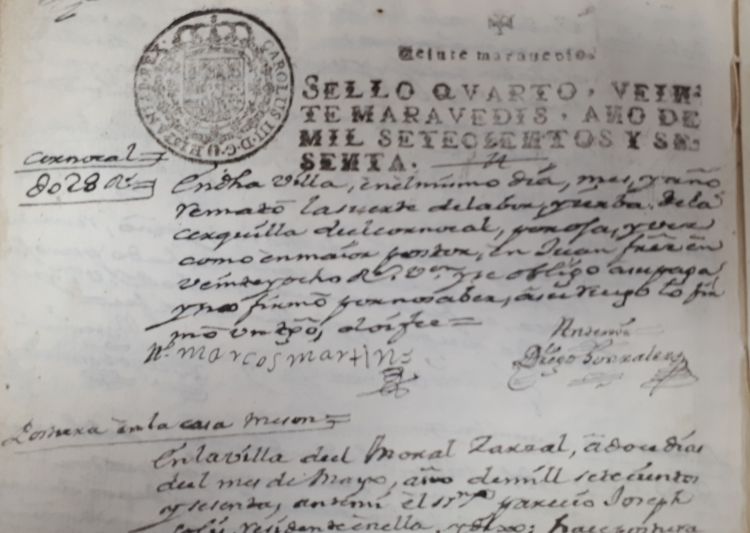 CAROLUS III D. G. HISPANIAR. REX
Veinte maravedis.
SELLO QVARTO, VEIN-
TE MARAVEDIS, AÑO DE
MIL SETECIENTOS Y SE-
SENTA.
cornocal
do 28 Rs
En dha villa, en el mismo dia, mes, y año
remató la suerte de labor, y yerba de la
cerquilla del cornocal, por oja, y vez
como en maior postor, en Juan frêz en
veinte y ocho Rs. Vn y se obligó a su paga
y no firmó por no saber, a su ruego lo fir
mó un tgo, doi fee =
marcos martin
Antemi
Diego Gonzalez
Postura en la casa Meson
En la villa del Moral Zarzal, à doce dias
del mes de Mayo, año de mill setecientos
y sesenta, antemi el ssno parecio Joseph
residente en ella, y dixo: hace postura